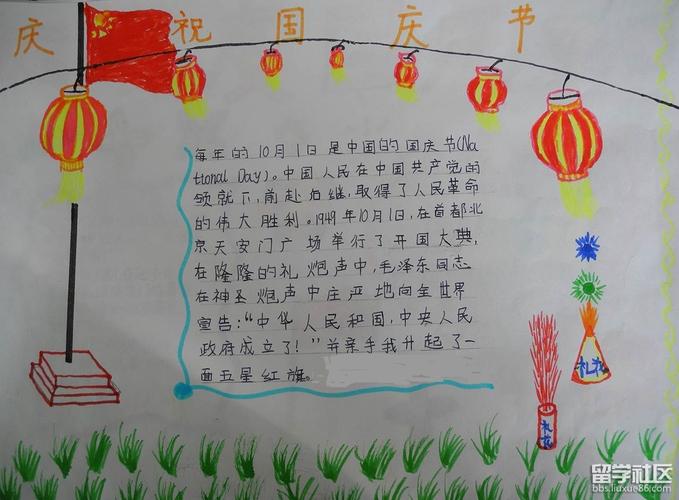 庆祝国庆节
每年的10月1日是中国的国庆节(Na
tional Day)。中国人民在中国共产党的
领就下,前赴后继,取得了人民革命
的伟大胜利。1949年10月1日,在首都北
京天安门广场举行了开国大典,
在隆隆的礼炮声中,毛泽东同志
在神圣炮声中庄严地向全世界
宣告:“中华人民和国,中央人民
政府成立了!”并亲手我升起了一
面五星红旗。
礼花
礼花
留学社区
bbs.liuxue86.com